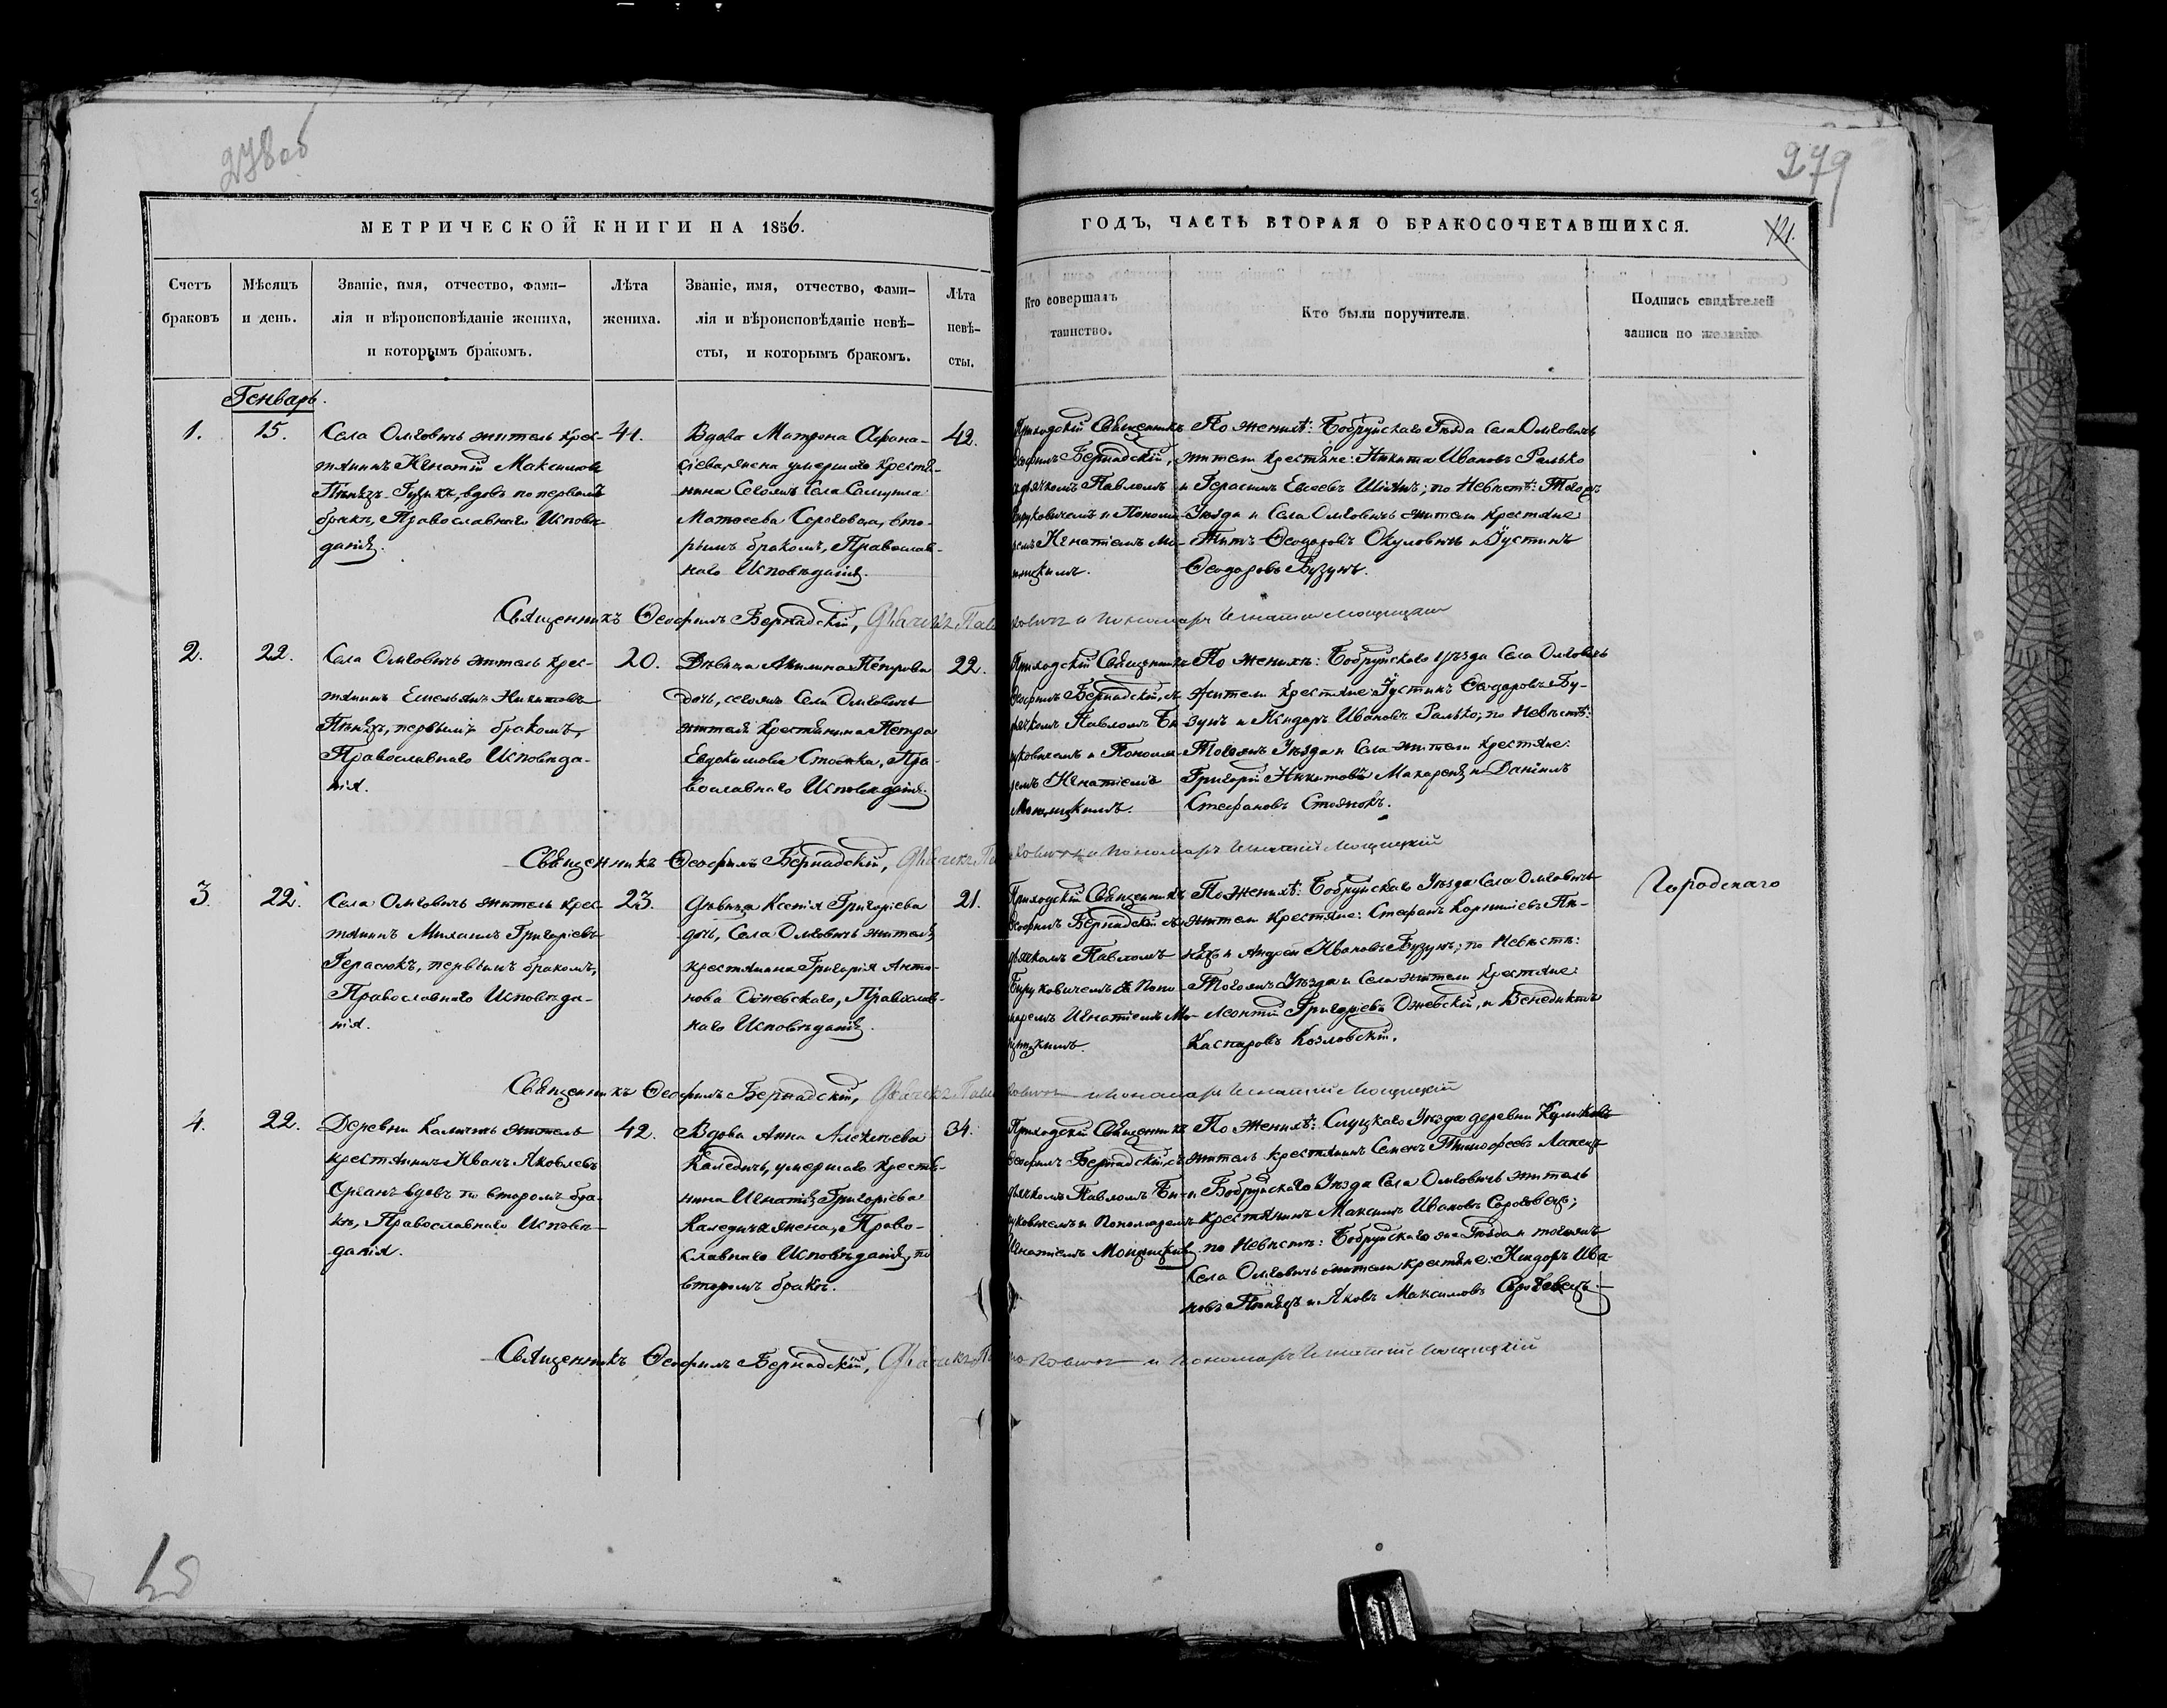 278об
279
МЕТРИЧЕСКОЙ КНИГИ НА 1856.
ГОДЪ, ЧАСТЬ ВТОРАЯ О БРАКОСОЧЕТАВШИХСЯ.
121.
Счетъ
браковъ
Мѣсяцъ
и день.
Званіе, имя, отчество, фами-
лія и вѣроисповѣданіе жениха,
и которымъ бракомъ.
Лѣта
жениха.
Званіе, имя, отчество, фами-
лія и вѣроисповѣданіе невѣ-
сты, и которымъ бракомъ.
Лѣта
невѣ-
сты.
Кто совершалъ
таинство.
Кто были поручители.
Подпись свидѣтелей
записи по желанію.
Генварь.
1.
15.
Села Омговичъ житель крес-
тянинъ Игнатій Максимовъ
Пѣнязь-Гузикъ, вдовъ по первомъ
бракѣ, Православнаго Исповѣ-
данія.
41.
Вдова Матрона Афана-
сіева, жена умершаго крестя-
нина Сегожъ Села Самуила
Матѳеева Сороговца, вто-
рымъ бракомъ, Православ-
наго Исповѣданія.
42.
Приходскій Священникъ
Ѳеофилъ Бернадскій,
съ дьячкомъ Павломъ
Бируковичемъ и Понома-
ремъ Игнатіемъ Мо-
щицкимъ.
По женихѣ: Бобруйскаго Уѣзда Села Омговичъ
жители крестяне: Никита Ивановъ Ралько
и Герасимъ Евсеевъ; по Невѣстѣ: Тогожъ
Уѣзда и Села Омговичъ жители крестяне:
Титъ Ѳеодоровъ Окуловичъ и Густинъ
Ѳеодоровъ Бузунъ.
Священникъ Ѳеофилъ Бернадскій, и пономаръ Игнатій Мощицкій
2.
22.
Села Омговичъ житель крес-
тянинъ Емельянъ Никитовъ
Пѣнязь, первымъ бракомъ,
Православнаго Исповѣда-
нія.
20.
Дѣвица Акилина Петрова
дочь, сегожъ Села Омговичъ
жителя крестянина Петра
Евдокимова Стоянка, Пра-
вославнаго Исповѣданія.
22.
Приходскій Священникъ
Ѳеофилъ Бернадскій, съ
дьячкомъ Павломъ Би-
руковичемъ и Понома-
ремъ Игнатіемъ
Мощицкимъ.
По женихѣ: Бобруйскаго Уѣзда Села Омговичъ
жители крестяне: Густинъ Ѳеодоровъ Бу-
зунъ и Исидоръ Ивановъ Ралько; по Невѣстѣ:
Тогожъ Уѣзда и Села жители крестяне:
Григорій Никитовъ Макареня и Даніилъ
Стефановъ Стоянокъ.
Священникъ Ѳеофилъ Бернадскій, и пономаръ Игнатій Мощицкій
3.
22.
Села Омговичъ житель крес-
тянинъ Михаилъ Григоріевъ
Герасюкъ, первымъ бракомъ,
Православнаго Исповѣда-
нія.
23.
Дѣвица Ксенія Григоріева
дочь, Села Омговичъ жителя,
крестянина Григорія Анто-
нова Ожевскаго, Православ-
наго Исповѣданія.
21.
Приходскій Священникъ
Ѳеофилъ Бернадскій съ
дьячкомъ Павломъ
Бируковичемъ и Поно-
маремъ Игнатіемъ Мо-
щицкимъ.
По женихѣ: Бобруйскаго Уѣзда Села Омговичъ
жители крестяне: Стефанъ Корниліевъ Пѣ-
нязь и Андрей Ивановъ Бузунъ; по Невѣстѣ:
Тогожъ Уѣзда и Села жители крестяне:
Леонтій Григоріевъ Ожевскій, и Бенедиктъ
Каспаровъ Козловскій.
Городснаго
Священникъ Ѳеофилъ Бернадскій, и пономаръ Игнатій Мощицкій
4.
22.
Деревни Каличичъ житель
крестянинъ Иванъ Яковлевъ
Органъ вдовъ по второмъ бра-
кѣ, Православнаго Исповѣ-
данія.
42.
Вдова Анна Алексѣева
Каледичъ, умершаго крестя-
нина Игнатія Григоріева
Каледича жена, Право-
славнаго Исповѣданія, по
второмъ бракѣ.
34.
Приходскій Священникъ
Ѳеофилъ Бернадскій, съ
дьячкомъ Павломъ Би-
руковичемъ и Пономаремъ
Игнатіемъ Мощицкимъ.
По женихѣ: Слуцкаго Уѣзда деревни
житель крестянинъ Семенъ Тимофеевъ Лапецъ
и Бобруйскаго Уѣзда Села Омговичъ житель
крестянинъ Максимъ Ивановъ Сороговецъ;
по Невѣстѣ: Бобруйскаго же Уѣзда и тогожъ
Села Омговичъ жители крестяне: Исидоръ Ива-
новъ Пѣнязь и Яковъ Максимовъ Сороговецъ.
Священникъ Ѳеофилъ Бернадскій, и пономаръ Игнатій Мощицкій